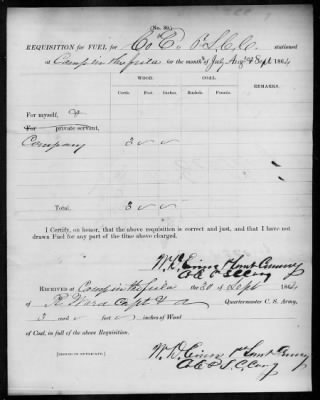 (No. 30.)
REQUISITION FOR FUEL for Co C, P. S. C. Co. stationed
at Camp in the field for the months of July, Augt & Sept 1864
WOOD. COAL. REMARKS.
Cords. Feet. Inches. Bushels. Pounds.
For myself,
For private servant,
Company 3
Total. 3
I Certify, on honor, that the above requisition is correct and just, and that I have not
drawn Fuel for any part of the time above charged.
W. D.
Received at Camp in the field the 30 of Sept 1864
of R Ward Capt & A Quartermaster C. S. Army,
3 cord feet inches of Wood
of Coal, in full of the above Requisition.
W. D.
[SIGNED IN DUPLICATE.]